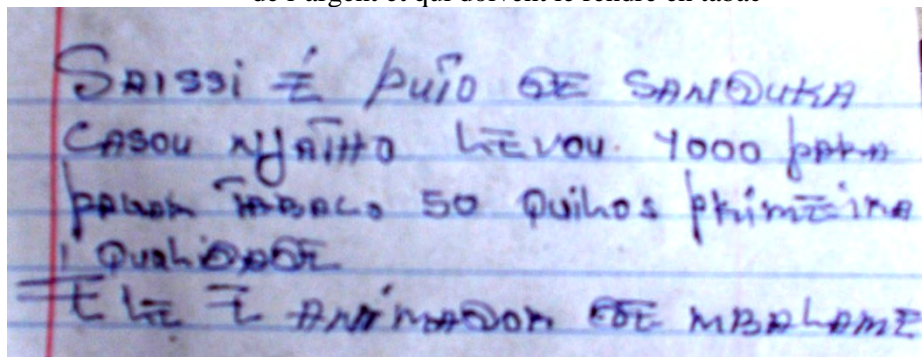 de l'argent et qui doivent le rendre en tabac
SAISSI É PUTO DE SANDUKA
CASOU NJATHO LEVOU. 4000 PARA
PAGAR TABACO 50 QUILOS PRIMEIRA
QUALIDADE
ELE É ANIMADOR DE MBALAME